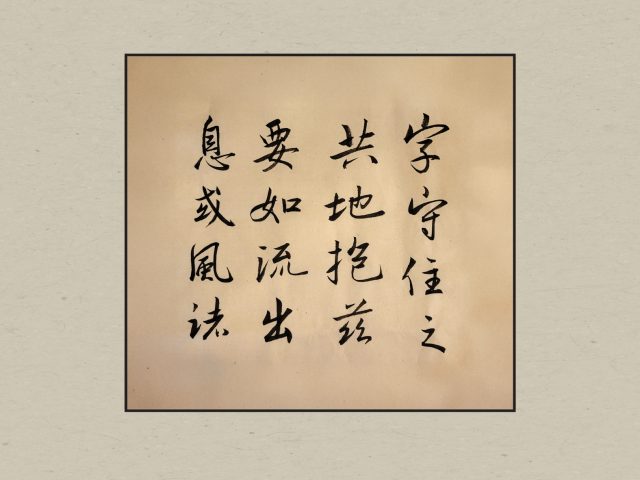 字守住之
共地抱兹
要如流出
息或風诸